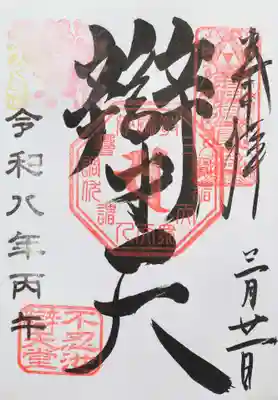 奉拝
三月廿一日
辯才天
令和八年丙午
不忍池
辯天堂